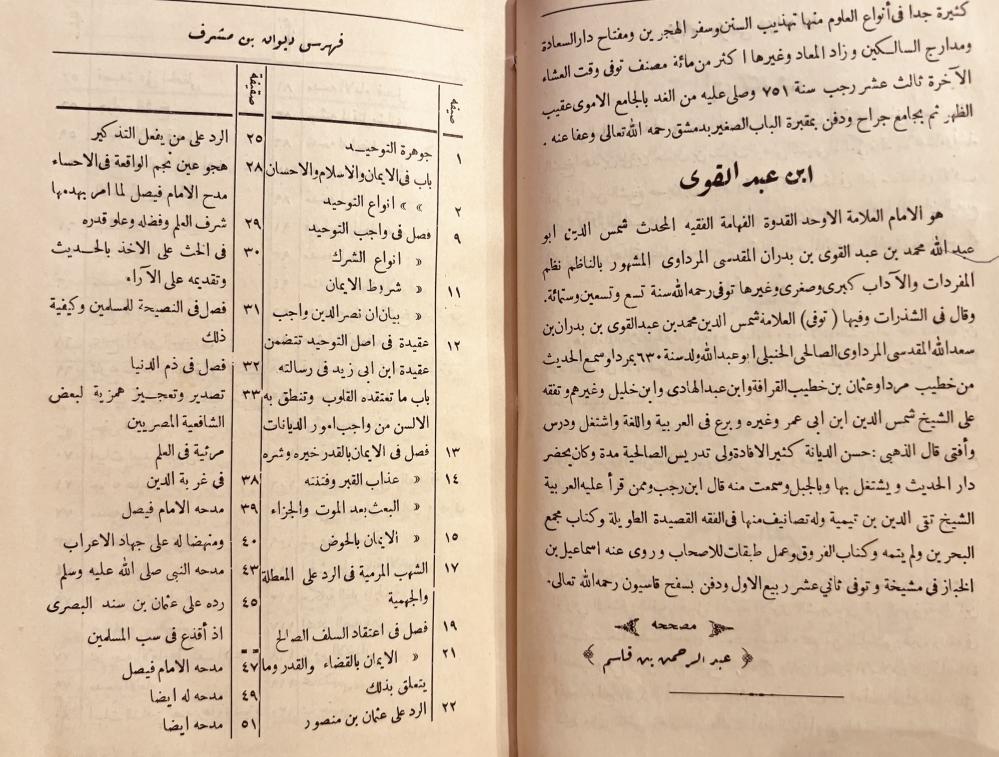 كثيرة جدا فى أنواع العلوم منها تهذيب السنن وسفر الهجرين ومفتاح دار السعادة
ومدارج السالكين وزاد المعاد وغيرها اكثر من مائة مصنف توفى وقت العشاء
الآخرة ثالث عشر رجب سنة ٧٥١ وصلى عليه من الغد بالجامع الاموى عقيب
الظهر ثم بجامع جراح ودفن بمقبرة الباب الصغير بدمشق رحمه الله تعالى وعفا عنه .
ابن عبد القوى
هو الامام العلامة الاوحد القدوة الفهامة الفقيه المحدث شمس الدين ابو
عبد الله محمد بن عبد القوى بن بدران المقدسى المرداوى المشهور بالناظم نظم
المفردات والآداب كبرى وصغرى وغيرها توفى رحمه الله سنة تسع وتسعين وستمائة.
وقال فى الشذرات وفيها ( توفى ) العلامة شمس الدين محمد بن عبد القوى بن بدران بن
سعد الله المقدسى المرداوى الصالحى الحنبلى ابو عبد الله ولد سنة ٦٣٠ بمردا وسمع الحديث
من خطيب مردا وعثمان بن خطيب القرافة وابن عبد الهادى وابن خليل وغيرهم وتفقه
على الشيخ شمس الدين ابن ابى عمر وغيره وبرع فى العربية واللغة واشتغل ودرس
وأفتى قال الذهبى : حسن الديانة كثير الافادة ولى تدريس الصالحية مدة وكان يحضر
دار الحديث ويشتغل بها وبالجبل وسمعت منه قال ابن رجب وممن قرأ عليه العربية
الشيخ تقى الدين بن تيمية وله تصانيف منها فى الفقه القصيدة الطويلة وكتاب مجمع
البحرين ولم يتمه وكتاب الفروق وعمل طبقات للاصحاب وروى عنه اسماعيل بن
الخباز فى مشيخة وتوفى ثانى عشر ربيع الاول ودفن بسفح قاسيون رحمه الله تعالى.
مصححه
عبد الرحمن بن قاسم
فهرس ديوان بن مشرف
صحيفة
١ جوهرة التوحيد
باب فى الايمان والاسلام والاحسان
٢ » » انواع التوحيد
٩ فصل فى واجب التوحيد
« انواع الشرك
١١ « شروط الايمان
« بيان ان نصر الدين واجب
١٢ عقيدة فى اصل التوحيد تتضمن
عقيدة ابن ابى زيد فى رسالته
باب ما تعتقده القلوب وتنطق به
الالسن من واجب امور الديانات
١٣ فصل فى الايمان بالقدر خيره وشره
١٤ « عذاب القبر وفتنته
« البعث بعد الموت والجزاء
١٥ « الايمان بالحوض
١٧ الشهب المرمية فى الرد على المعطلة
والجهمية
١٩ فصل فى اعتقاد السلف الصالح
٢١ « الايمان بالقضاء والقدر وما
يتعلق بذلك
٢٢ الرد على عثمان بن منصور
صحيفة
٢٥ الرد على من يفعل التذكير
٢٨ هجو عين نجم الواقعة فى الاحساء
مدح الامام فيصل لما امر بهدمها
٢٩ شرف العلم وفضله وعلو قدره
٣٠ فى الحث على الاخذ بالحديث
وتقديمه على الآراء
٣١ فصل فى النصيحة للمسلمين وكيفية
ذلك
٣٢ فصل فى ذم الدنيا
٣٣ تصدير وتعجيز همزية لبعض
الشافعية المصريين
مرثية فى العلم
٣٨ فى غربة الدين
٣٩ مدحه الامام فيصل
٤٠ ومنهضا له على جهاد الاعراب
٤٣ مدحه النبى صلى الله عليه وسلم
٤٥ رده على عثمان بن سند البصرى
اذ أقذع فى سب المسلمين
٤٧ مدحه الامام فيصل
٤٩ مدحه له ايضا
٥١ مدحه ايضا